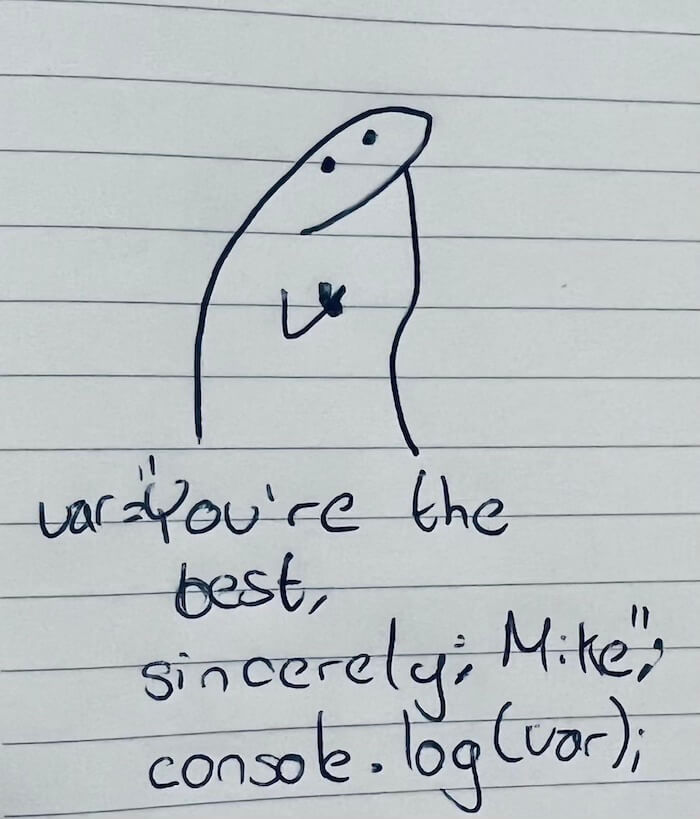 var="You're the
best,
sincerely; Mike";
console.log(var);